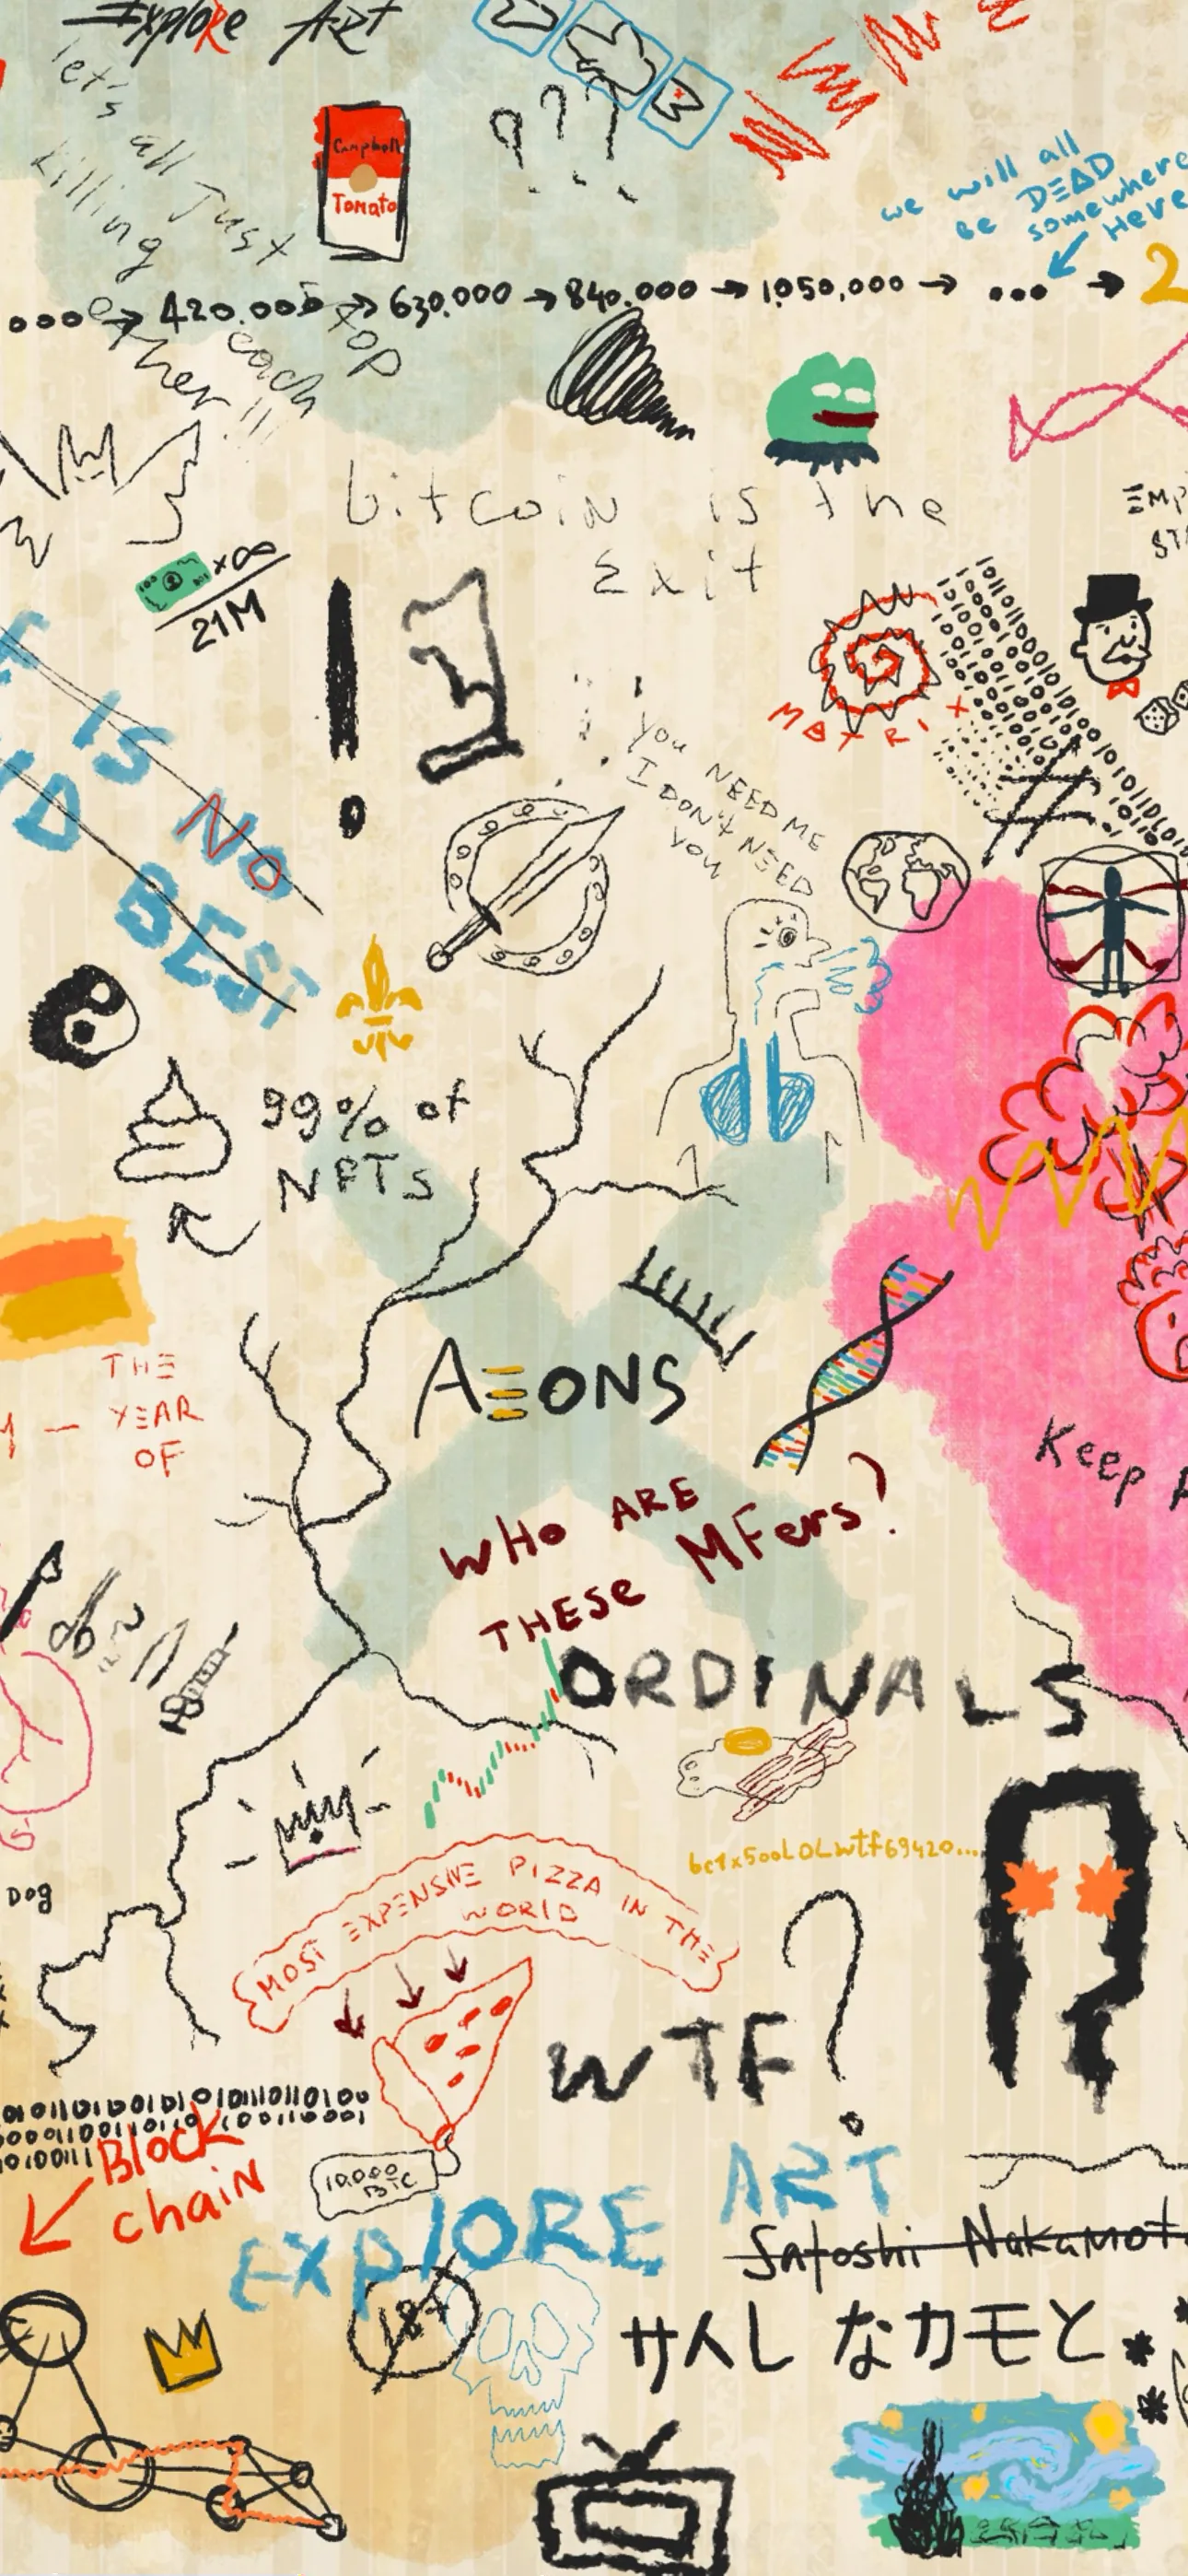 Explore Art
let's
all Just
killing
Campbell
Tomato
???
we will all
BE DEAD
somewhere
HERE
→ 420.000 → 630.000 → 840.000 → 1.050,000 → ... → 2
stop
each
other !!!
bitcoin is the
Exit
x∞
21M
IS NO
BEST
MATRIX
you NEED ME
I DON'T NEED
you
99% of
NFTs
THE
YEAR
OF
AΞONS
Keep
WHO ARE
THESE MFers?
ORDINALS
bc1x500LOLwtf69420...
Dog
MOST EXPENSIVE PIZZA IN THE
WORLD
WTF?
Block
chain
10.000
BTC
EXPLORE ART
Satoshi Nakamot
18+
サトし なカモと